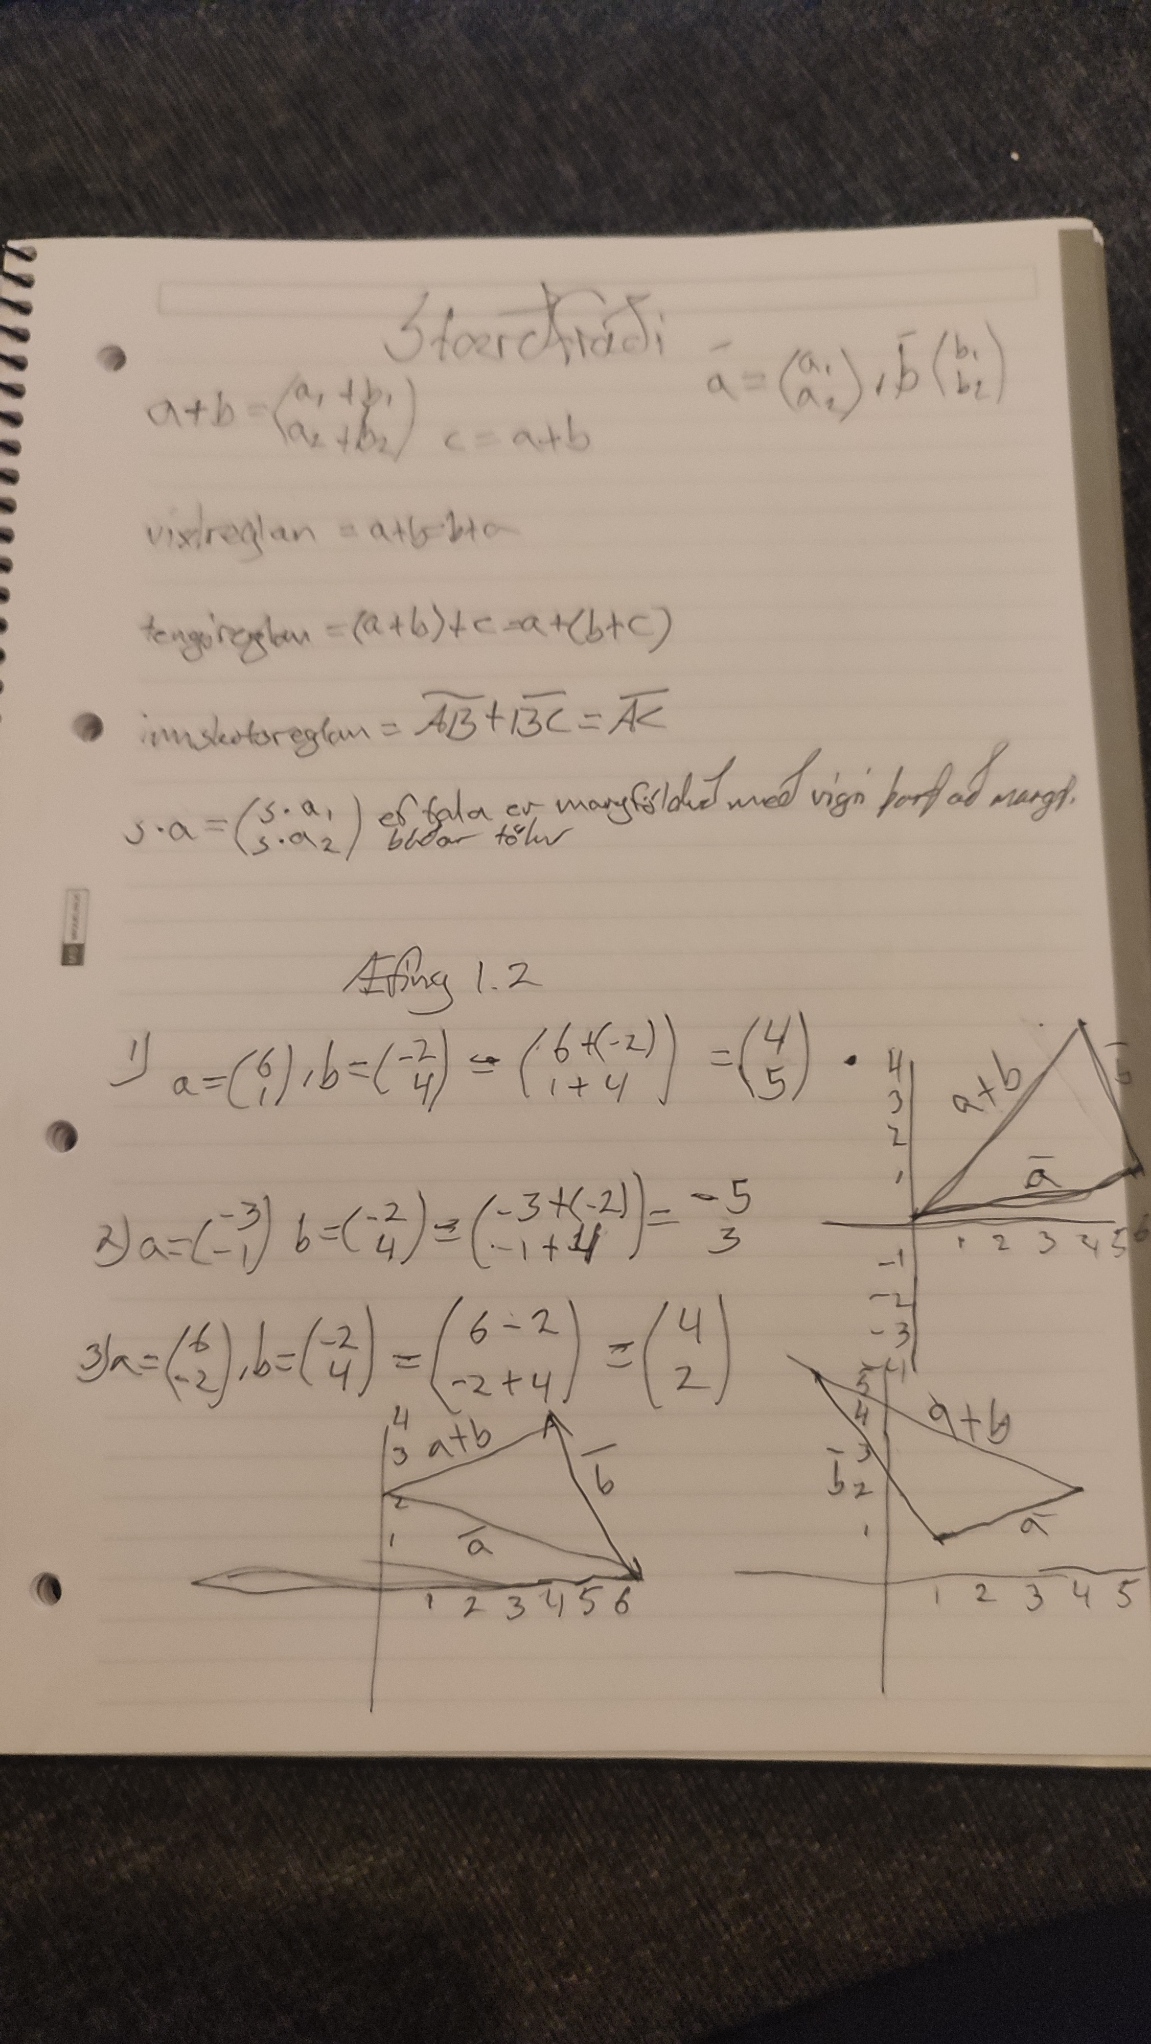 Stærðfræði
ā = (a₁ a₂), b̄ (b₁ b₂)
a+b = (a₁+b₁ a₂+b₂) c = a+b
víxlreglan = a+b=b+a
tengireglan = (a+b)+c=a+(b+c)
innskotsreglan = AB+BC=AC
s·a = (s·a₁ s·a₂) ef tala er margfölduð með vigri þarf að margf.
báðar tölur
Æfing 1.2
1) a=(6 1), b=(-2 4) = (6+(-2) 1+4) = (4 5)
2) a=(-3 -1) b=(-2 4) = (-3+(-2) -1+4) = -5 3
3) a=(6 -2), b=(-2 4) = (6-2 -2+4) = (4 2)
4
3
2
1
a+b
b̄
ā
1 2 3 4 5 6
-1
-2
-3
-4
4
3
2
1
a+b
b̄
ā
1 2 3 4 5 6
5
4
3
2
1
a+b
b̄
ā
1 2 3 4 5